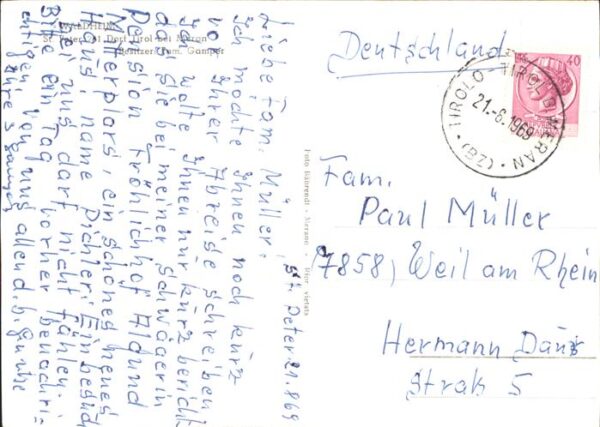 WALDHEIM
St. Peter bei Dorf Tirol bei Meran
Besitzer: Fam. Gamper
St. Peter 21.8 69
Liebe Fam, Müller!
ich möchte Ihnen noch kurz
vor Ihrer Abreise schreiben
ich wolte Ihnen nur kurz bericht
das sie bei meiner schwägerin
Pension Fröhlich hof Algund
Mitterplars, ein schönes neues
Haus name Pichler: Ein besuch
bei uns darf nicht fählen.
Bitte ein Tag vorher benachri=
chtigen, von uns allen d. b. Grüße
Ihre
Foto Bährendt - Meran
Deutschland
40
TIROLO - TIROL B. MERAN
21.-6.1969
(BZ)
Fam.
Paul Müller
(7858) Weil am Rhein
Hermann Daur
Strak 5